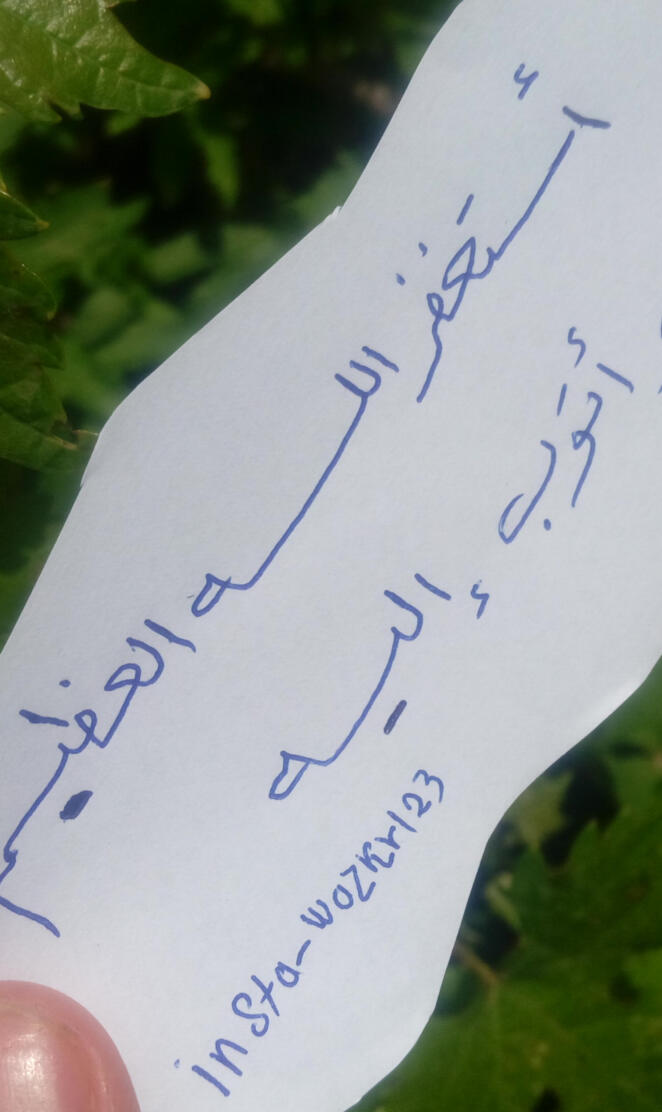 أستَغفر اللــه العظيم
أتَوب إليه
insta-wozkr123